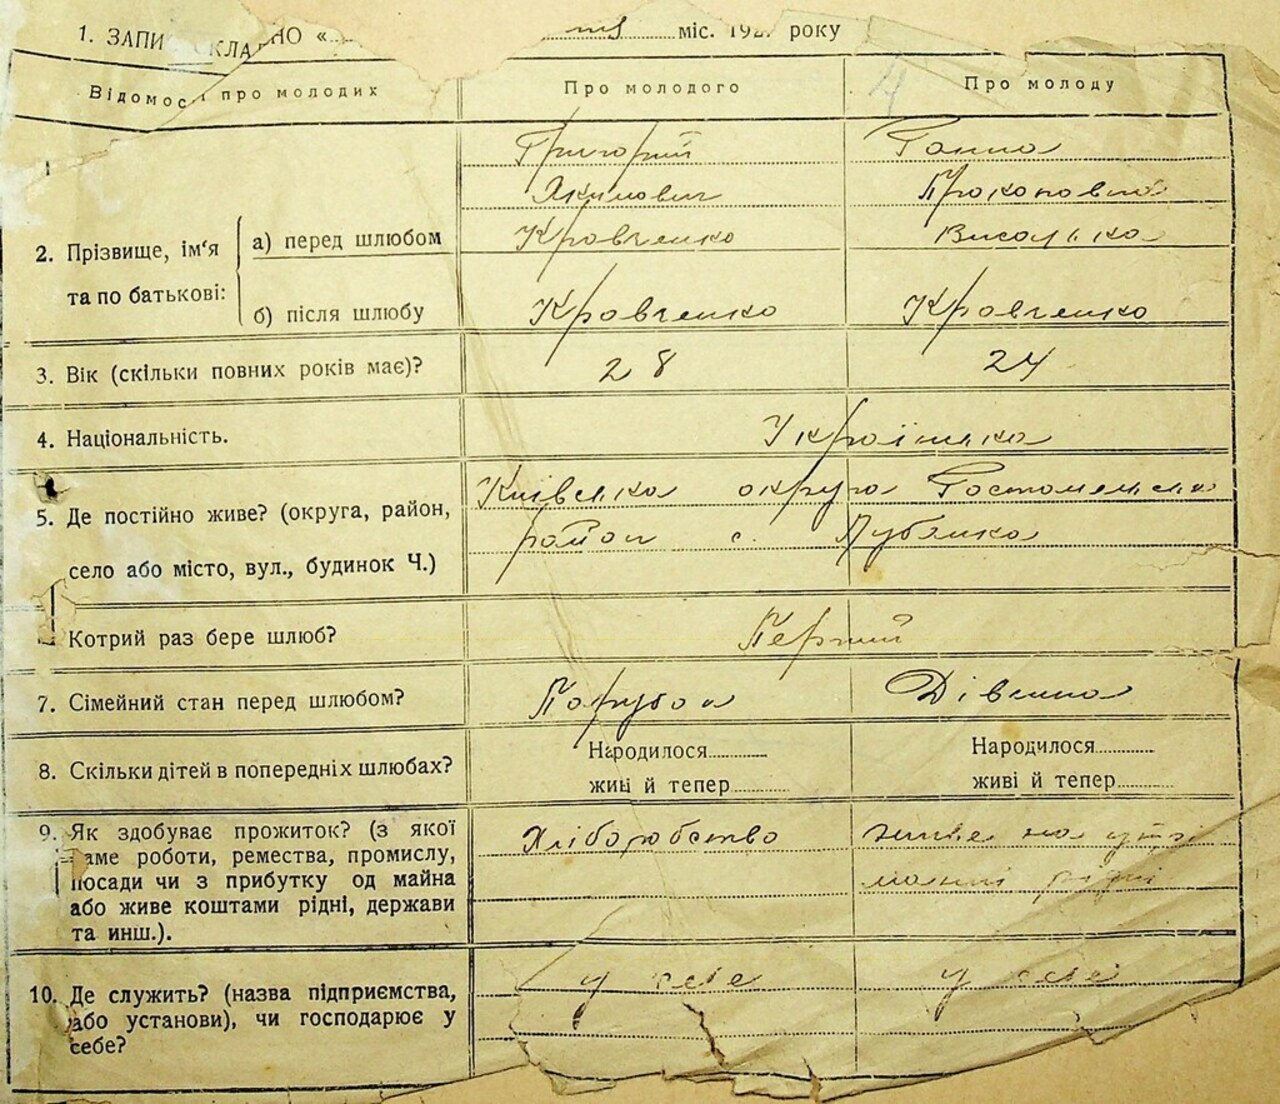 1. ЗАПИ КЛА НО « міс. 192 року
Відомос і про молодих Про молодого Про молоду
Григорій Ганна
Якимович Прокоповна
2. Прізвище, ім'я та по батькові: а) перед шлюбом Кравченко
б) після шлюбу Кравченко Кравченко
3. Вік (скільки повних років має)? 28 24
4. Національність. Українська
5. Де постійно живе? (округа, район, Київська округа Гостомельський
село або місто, вул., будинок Ч.) район с. Лубянка
Котрий раз бере шлюб? Перший
7. Сімейний стан перед шлюбом? Парубок Дівчина
8. Скільки дітей в попередніх шлюбах? Народилося Народилося
живі й тепер живі й тепер
9. Як здобуває прожиток? (з якої Хліборобство живе на утрі
саме роботи, ремества, промислу, манні рідні
посади чи з прибутку од майна
або живе коштами рідні, держави
та инш.).
10. Де служить? (назва підприємства, у себе у себе
або установи), чи господарює у
себе?